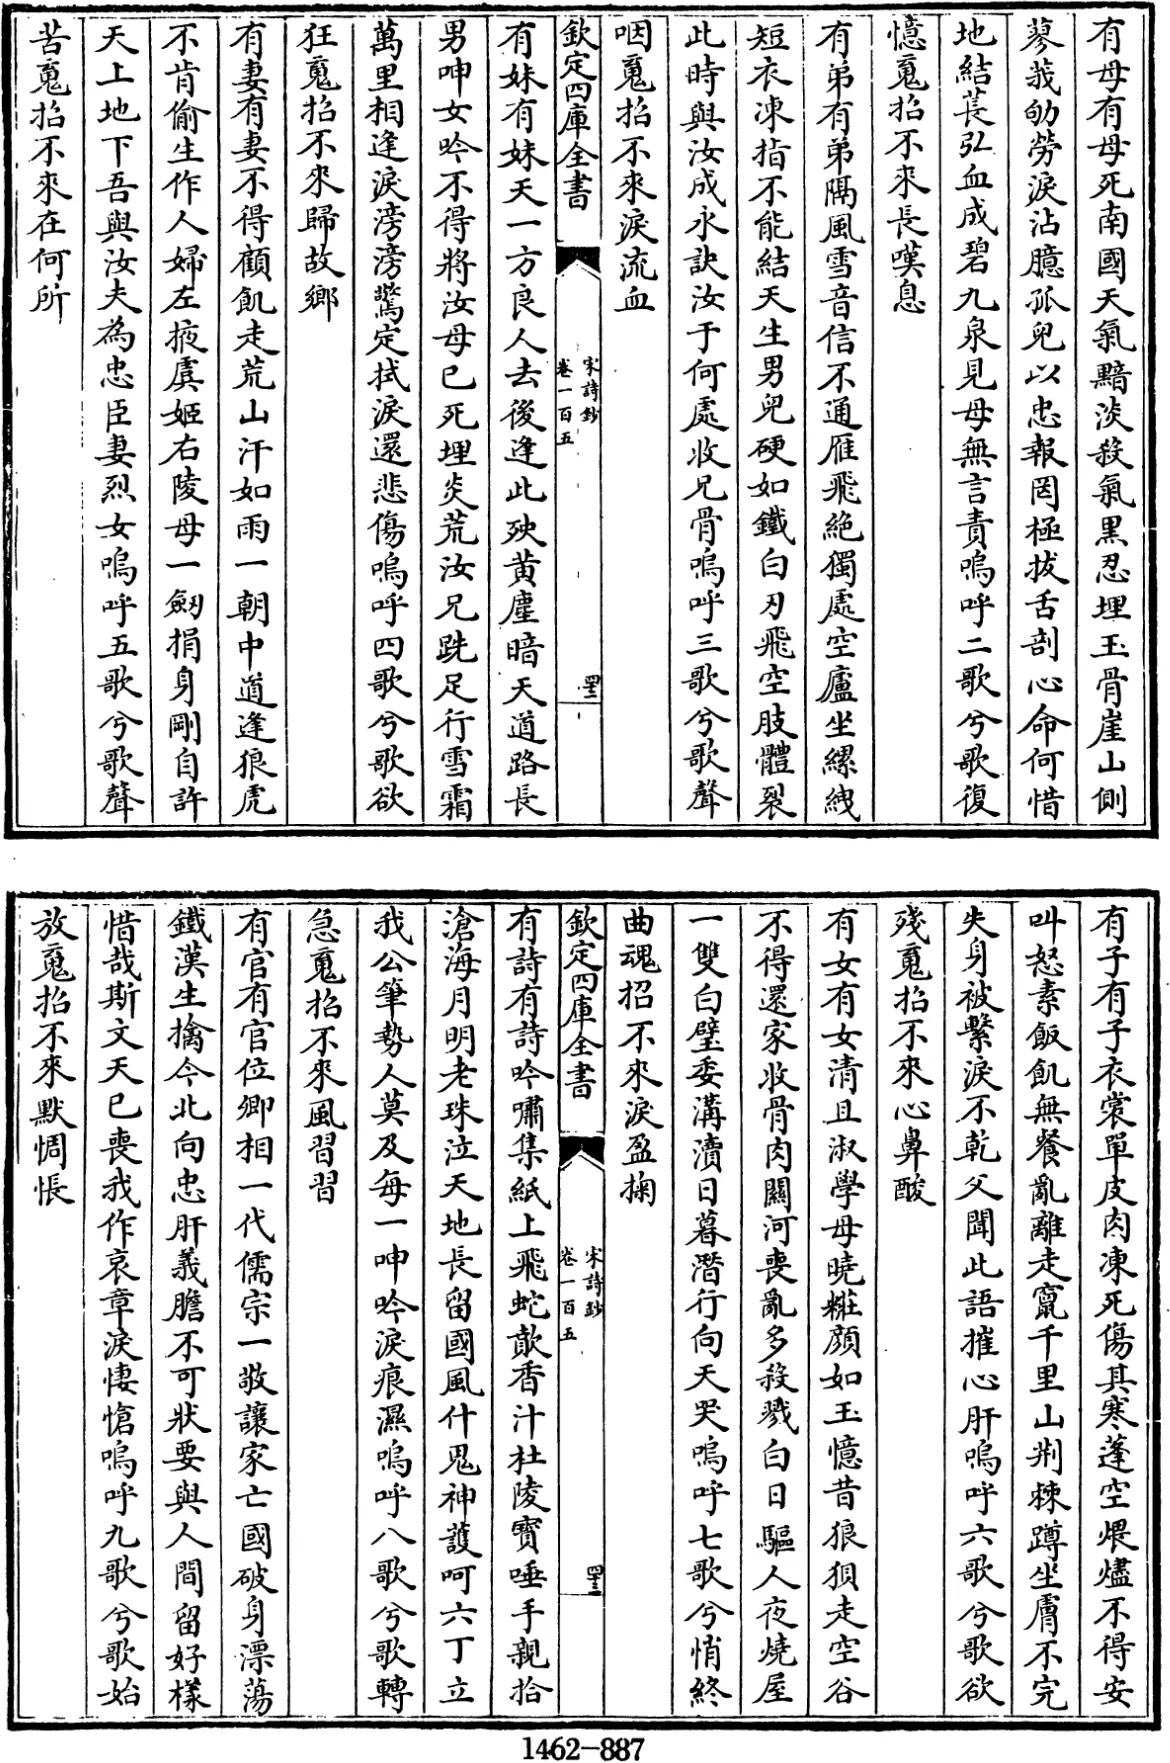 有母有母死南國天氣黯淡殺氣黒忍埋玉骨崖山側
蓼莪劬勞淚沾臆孤兒以忠報罔極拔舌剖心命何惜
地結萇弘血成碧九泉見母無言責嗚呼二歌兮歌復
憶䰟招不來長嘆息
有弟有弟隔風雪音信不通雁飛絶獨處空廬坐縲絏
短衣凍指不能結天生男兒硬如鐵白刃飛空肢體裂
此時與汝成永訣汝于何處收兄骨嗚呼三歌兮歌聲
咽䰟招不來淚流血
欽定四庫全書
宋詩鈔
卷一百五
有妹有妹天一方良人去後逢此殃黄塵暗天道路長
男呻女吟不得將汝母已死埋炎荒汝兄跣足行雪霜
萬里相逢淚滂滂驚定拭淚還悲傷嗚呼四歌兮歌欲
狂䰟招不來歸故鄉
有妻有妻不得顧飢走荒山汗如雨一朝中道逢狼虎
不肯偷生作人婦左掖虞姬右陵母一劒捐身剛自許
天上地下吾與汝夫為忠臣妻烈女嗚呼五歌兮歌聲
苦䰟招不來在何所
有子有子衣裳單皮肉凍死傷其寒蓬空煨燼不得安
叫怒索飯飢無餐亂離走竄千里山荆棘蹲坐膚不完
失身被繫淚不乾父聞此語摧心肝嗚呼六歌兮歌欲
殘䰟招不來心鼻酸
有女有女清且淑學母曉粧顔如玉憶昔狼狽走空谷
不得還家收骨肉關河喪亂多殺戮白日驅人夜燒屋
一雙白璧委溝瀆日暮潛行向天哭嗚呼七歌兮悄終
曲魂招不來淚盈掬
欽定四庫全書
宋詩鈔
卷一百五
有詩有詩吟嘯集紙上飛蛇歕香汁杜陵寳唾手親拾
滄海月明老珠泣天地長留國風什鬼神護呵六丁立
我公筆勢人莫及每一呻吟淚痕濕嗚呼八歌兮歌轉
急䰟招不來風習習
有官有官位卿相一代儒宗一敬讓家亡國破身漂蕩
鐵漢生擒今北向忠肝義膽不可狀要與人間留好樣
惜哉斯文天已喪我作哀章淚悽愴嗚呼九歌兮歌始
放䰟招不來默惆悵
1462-887